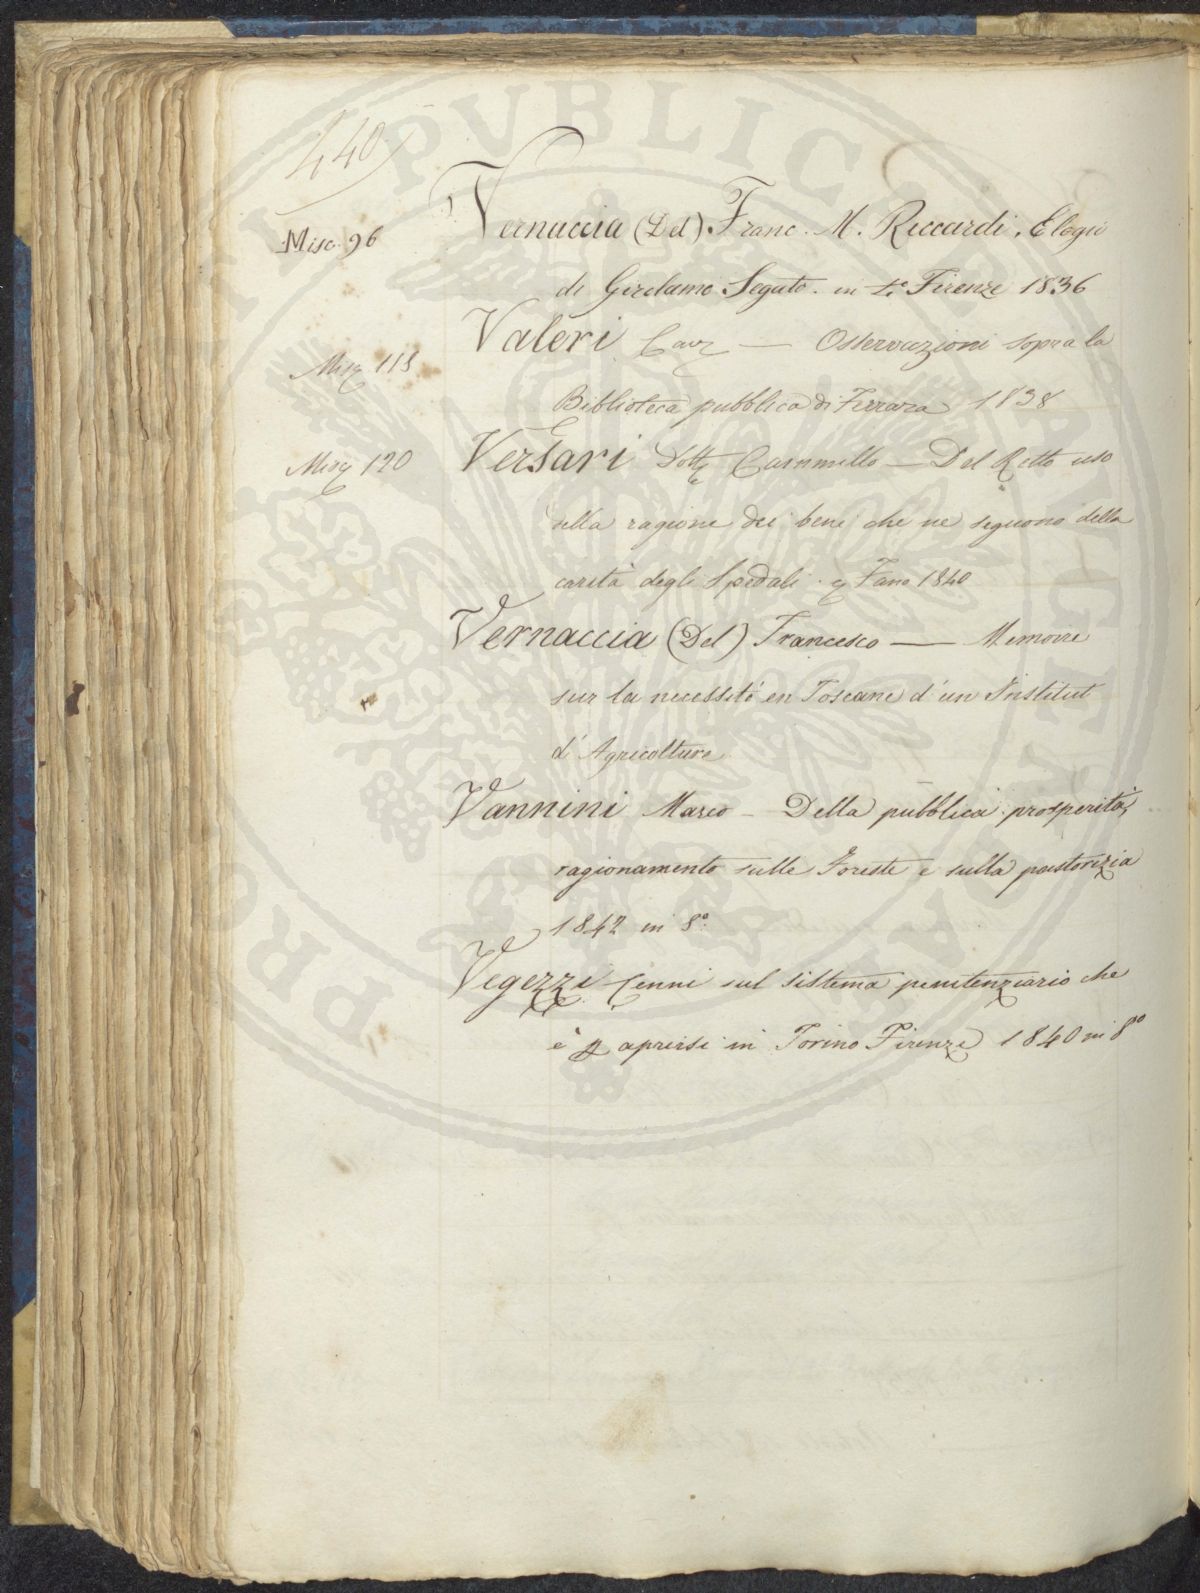 440
Misc. 96 Vernaccia (Del) Franc. M. Riccardi. Elogio
di Girolamo Segato. in 4.º Firenze 1836
Valeri Cav — Osservazioni sopra la
Misc 118
Biblioteca pubblica di Ferrara 1838
Misc 120 Versari Dott Cammillo — Del Retto uso
della ragione dei beni che ne seguono della
carità degli Spedali. Fano 1840
Vernaccia (Del) Francesco — Memoire
sur la necessité en Toscane d'un Institut
d'Agricolture
Vannini Marco — Della pubblica prosperità,
ragionamento sulle Foreste e sulla pastorizia
1842 in 8º.
Vegezzi Cenni sul sistema penitenziario che
è p aprirsi in Torino Firenze 1840 in 8º
PROPE PVBLICAE